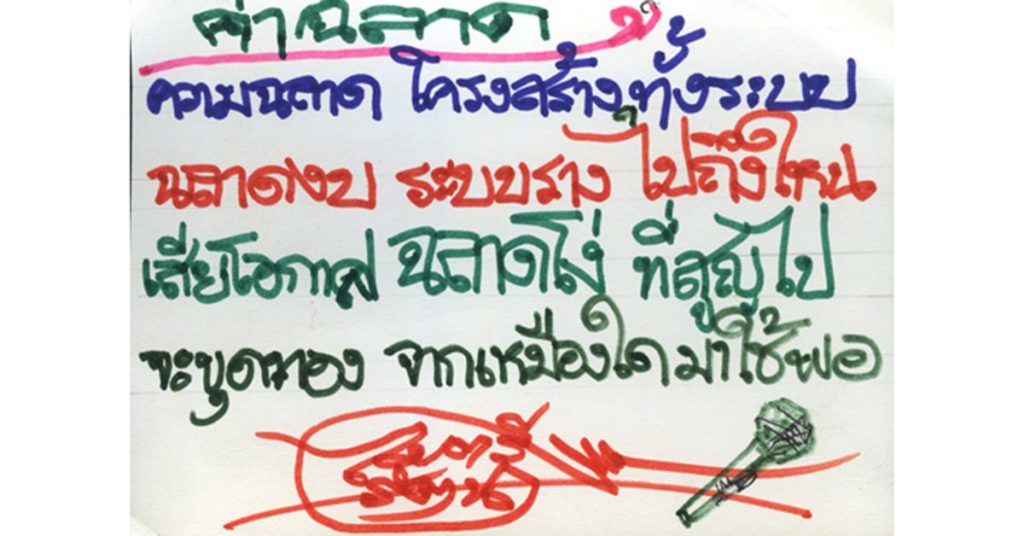 ค่าฉลาด
ความฉลาด โครงสร้างทั้งระบบ
ฉลาดงบ ระบบราง ไปถึงไหน
เสียโอกาส ฉลาดโง่ ที่สูญไป
จะขุดทอง จากเหมืองใดมาใช้พอ